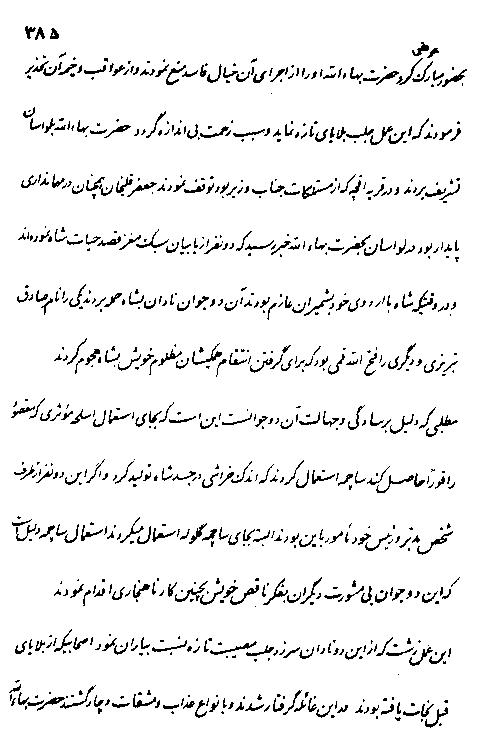 ۳۸۵
عرضی
بحضور مبارک کرد حضرت بهاءالله او را از اجرای آن خیال فاسد منع نمودند و از عواقب وخیمه آن تحذیر
فرمودند که این عمل جلب بلایای تازه نماید و سبب زحمت بی اندازه گردد حضرت بهاءالله بلواسان
تشریف بردند و در قریه افچه که از مستملکات جناب وزیر بود توقف نمودند جعفر قلیخان همچنان در مهمانداری
پایدار بود در لواسان بحضرت بهاءالله خبر رسید که دو نفر از بابیان سبک مغز قصد حیات شاه نموده‌اند
و در وقتیکه شاه با اردوی خود بشمیران عازم بودند آن دو جوان نادان بشاه حمله بردند یکی را نام صادق
تبریزی و دیگری را فتح الله قمی بود که برای گرفتن انتقام همکیشان مظلوم خویش بشاه هجوم کردند
مطلبی که دلیل بر سادگی و جهالت آن دو جوانست این است که بجای استعمال اسلحه مؤثری که مقصود
را فوراً حاصل کند ساچمه استعمال کردند که اندک خراشی در جسد شاه تولید کرد و اگر این دو نفر از طرف
شخص مدبر و رئیس خود مأمور باین بودند البته بجای ساچمه گلوله استعمال میکردند استعمال ساچمه دلیل است
که این دو جوان بی مشورت دیگران بفکر ناقص خویش بچنین کار ناهنجاری اقدام نمودند
این عمل زشت که از این دو نادان سر زد جلب مصیبت تازه نسبت بیاران نمود اصحابیکه از بلایای
قبل نجات یافته بودند در این غائله گرفتار شدند و بانواع عذاب و مشقات دچار گشتند حضرت بهاءالله